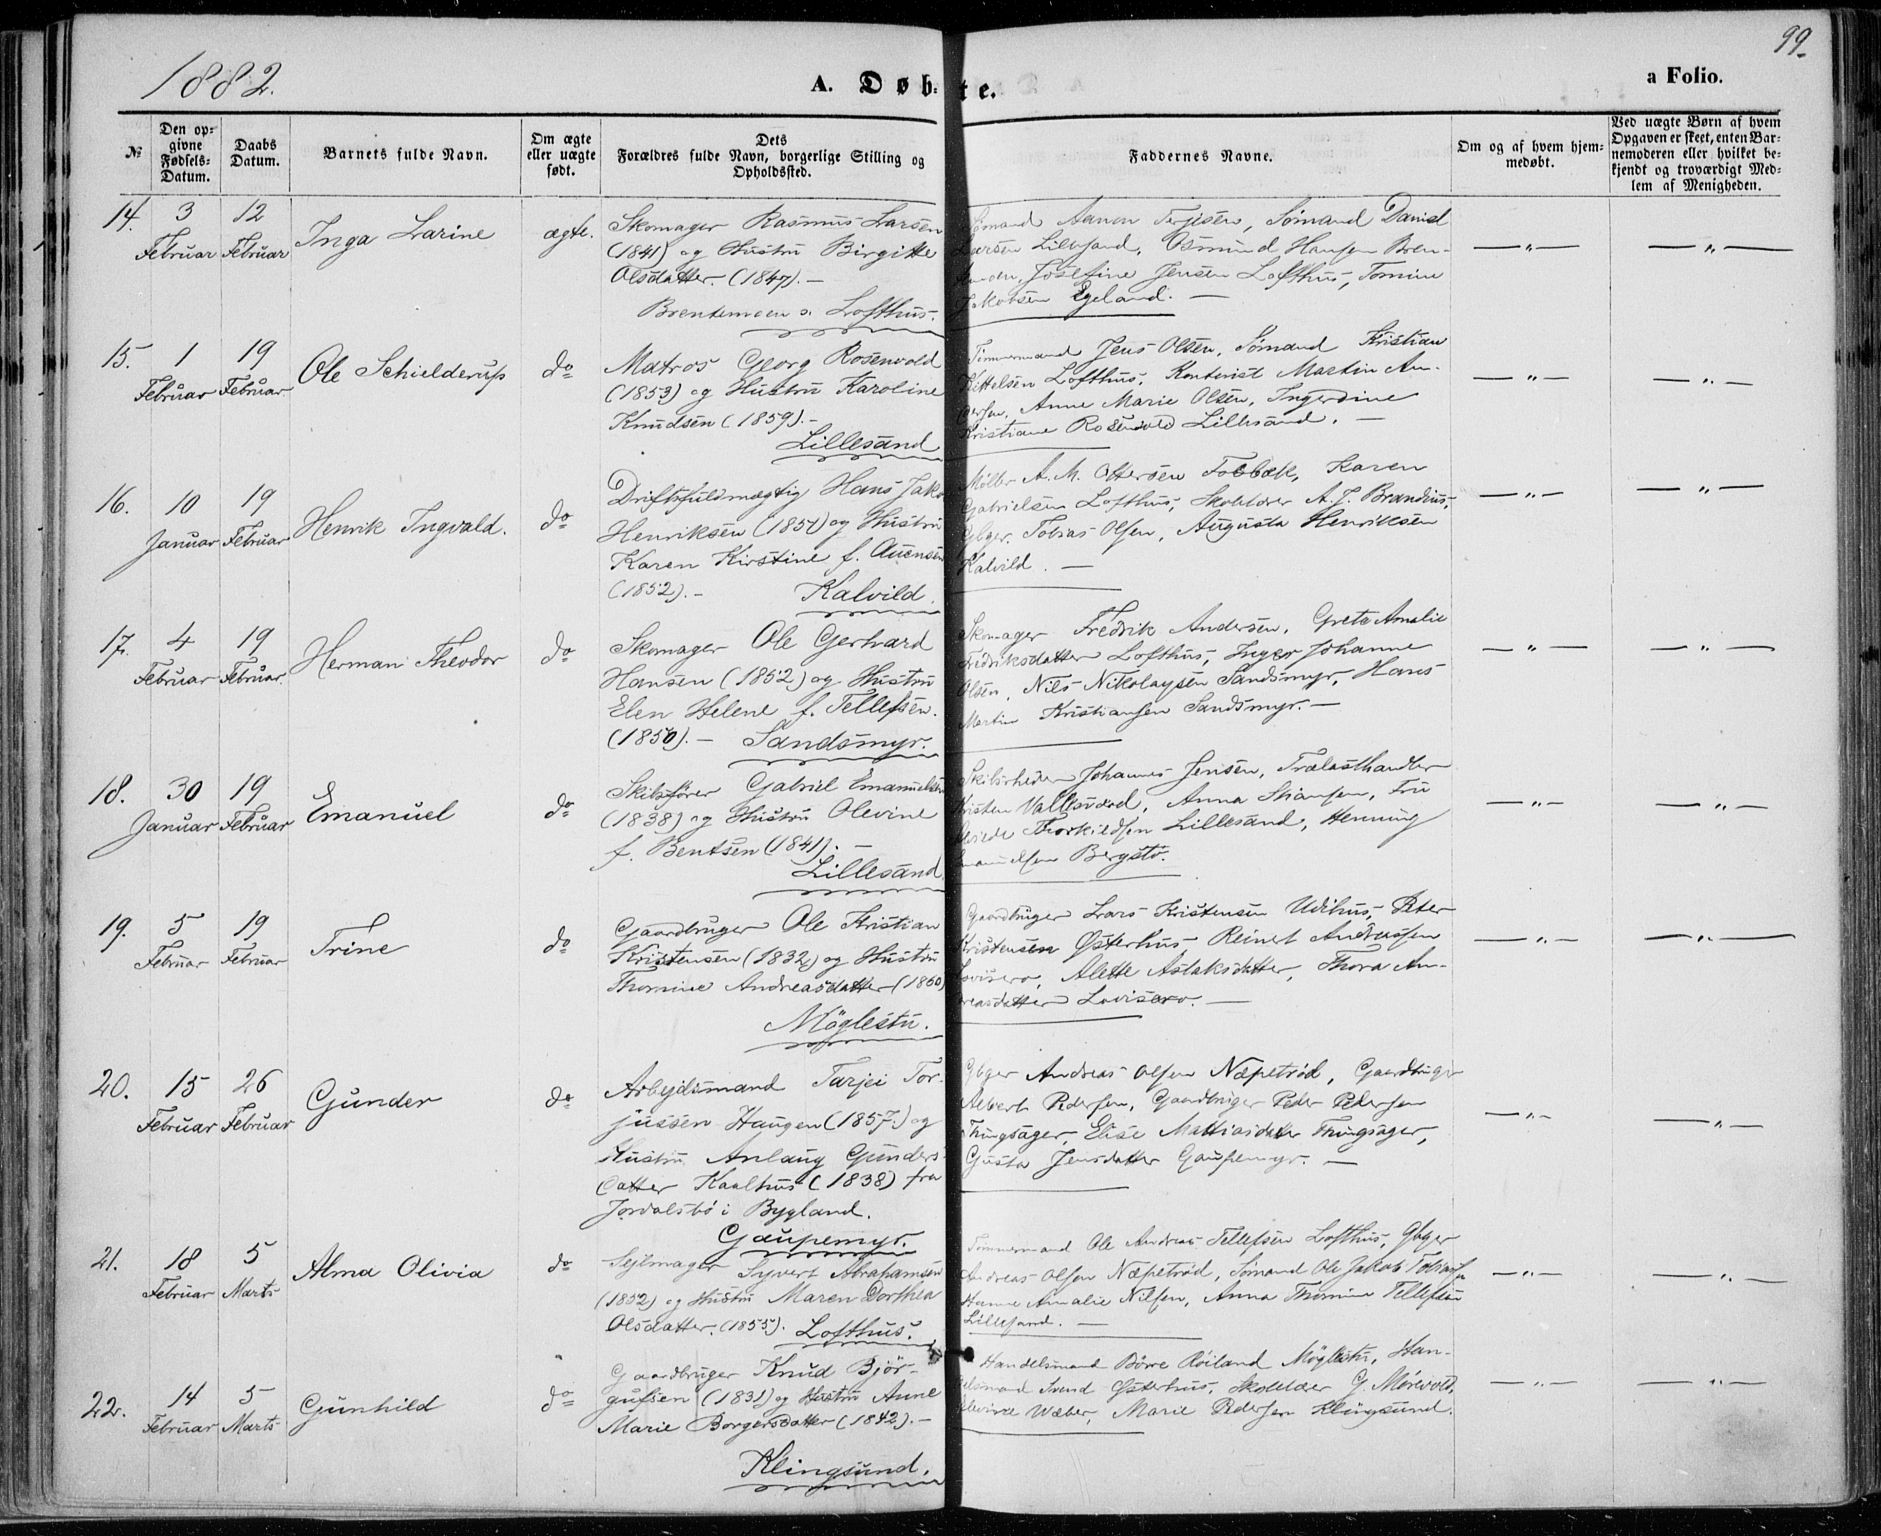 1882.
A. Døbte.
a Folio.
99.
№
Den op-
givne
Fødsels-
Datum.
Daabs
Datum.
Barnets fulde Navn.
Om ægte
eller uægte
født.
Dets
Forældres fulde Navn, borgerlige Stilling og
Opholdssted.
Faddernes Navne.
Om og af hvem hjem-
medøbt.
Ved uægte Børn af hvem
Opgaven er skeet, enten Bar-
nemoderen eller hvilket be-
kjendt og troværdigt Med-
lem af Menigheden.
14. 3 Februar 12 Februar Inga Larine ægte.
Skomager Rasmus Larsen
(1841) og Hustru Birgitte
Olsdatter. (1847). —
Brentemoen v. Lofthus.
Sømand Aanon Terjesen, Sømand Daniel
Larsen Lillesand, Osmund Hansen Bren-
Josefine Jensen Lofthus, Tomine
Jakobsen Egeland. —
— " — — " —
15. 1 Februar 19 Februar Ole Schielderup do
Matros Georg Rosenvold
(1853) og Hustru Karoline
Knudsen (1859). —
Lillesand
Tømmermand Jens Olsen, Sømand Kristian
Kittelsen Lofthus, Kontorist Martin An-
dersen, Anne Marie Olsen, Ingerdine
Kristiane Rosenvold Lillesand. —
— " — — " —
16. 10 Januar 19 Februar Henrik Ingvald. do
Driftsfuldmægtig Hans Jako
Henriksen (1851) og Hustru
Karen Kirstine f. Auensen
(1852). — Kalvild.
Møller A. M. Ottersen Fosbæk, Karen
Gabrielsen Lofthus, Skolelærer A. J. Brandius,
Gbger. Tobias Olsen, Augusta Henriksen
Kalvild. —
— " — — " —
17. 4 Februar 19 Februar. Herman Theodor do
Skomager Ole Gerhard
Hansen (1852) og Hustru
Elen Helene f. Tellefsen.
(1850). — Sandsmyr.
Skomager Fredrik Andersen, Grete Amalie
Fredriksdatter Lofthus, Inger Johanne
Olsen, Nils Nikolaysen Sandsmyr, Hans
Martin Kristiansen Sandsmyr. —
— " — — " —
18. 30 Januar 19 Februar Emanuel do
Skibsfører Gabriel Emanuelsen
(1838) og Hustru Olevine
f. Bentsen (1841). —
Lillesand
Skibsrheder Johannes Jensen, Trælasthandler
Kristen Vallesværd, Anna Stiansen, Fru
Thorkildsen Lillesand, Henning
Emanuelsen Bergstø.
— " — — " —
19. 5 Februar 19 Februar Trine do
Gaardbruger Ole Kristian
Kristensen (1832) og Hustru
Thomine Andreasdatter (1850)
Møglestu.
Gaardbruger Lars Kristensen Udihus, Peter
Kristensen Østerhus, Reinert Andreassen
Lovisero, Alette Aslaksdatter, Thora An-
dreasdatter Lovisero. —
— " — — " —
20. 15 Februar 26 Februar Gunder do
Arbejdsmand Tarjei Tor-
jussen Haugen (1857.) og
Hustru Anlaug Gunders-
datter Kaalhus (1838) fra
Jordalsbø i Bygland.
Gaupemyr.
Gbger Andreas Olsen Næpetrød, Gaardbruger
Albert Pedersen, Gaardbruger Peder Pedersen
Thingsager, Elise Mathiasdatter Thingsager,
Gusta Jensdatter Gaupemyr. —
— " — — " —
21. 18 Februar 5 Marts Alma Olivia do
Sejlmager Syvert Abrahamsen
(1852) og Hustru Maren Dorthea
Olsdatter. (1855). Lofthus.
Tømmermand Ole Andreas Tellefsen Lofthus, Gbger
Andreas Olsen Næpetrød, Sømand Ole Jakob Tobiassen
Hanne Amalie Nilsen, Anna Thomine Tellefsen
Lillesand. —
— " — — " —
22. 14 Februar 5 Marts Gunhild do
Gaardbruger Knud Bjør-
gufsen (1831) og Hustru Anne
Marie Borgersdatter (1842). —
Klingsund.
Handelsmand Børre Røiland Møglestu, Han-
delsmand Svend Østerhus, Skolelær G. Mørevold,
Wæber, Marie Pedersen Klingsund.
— " — — " —